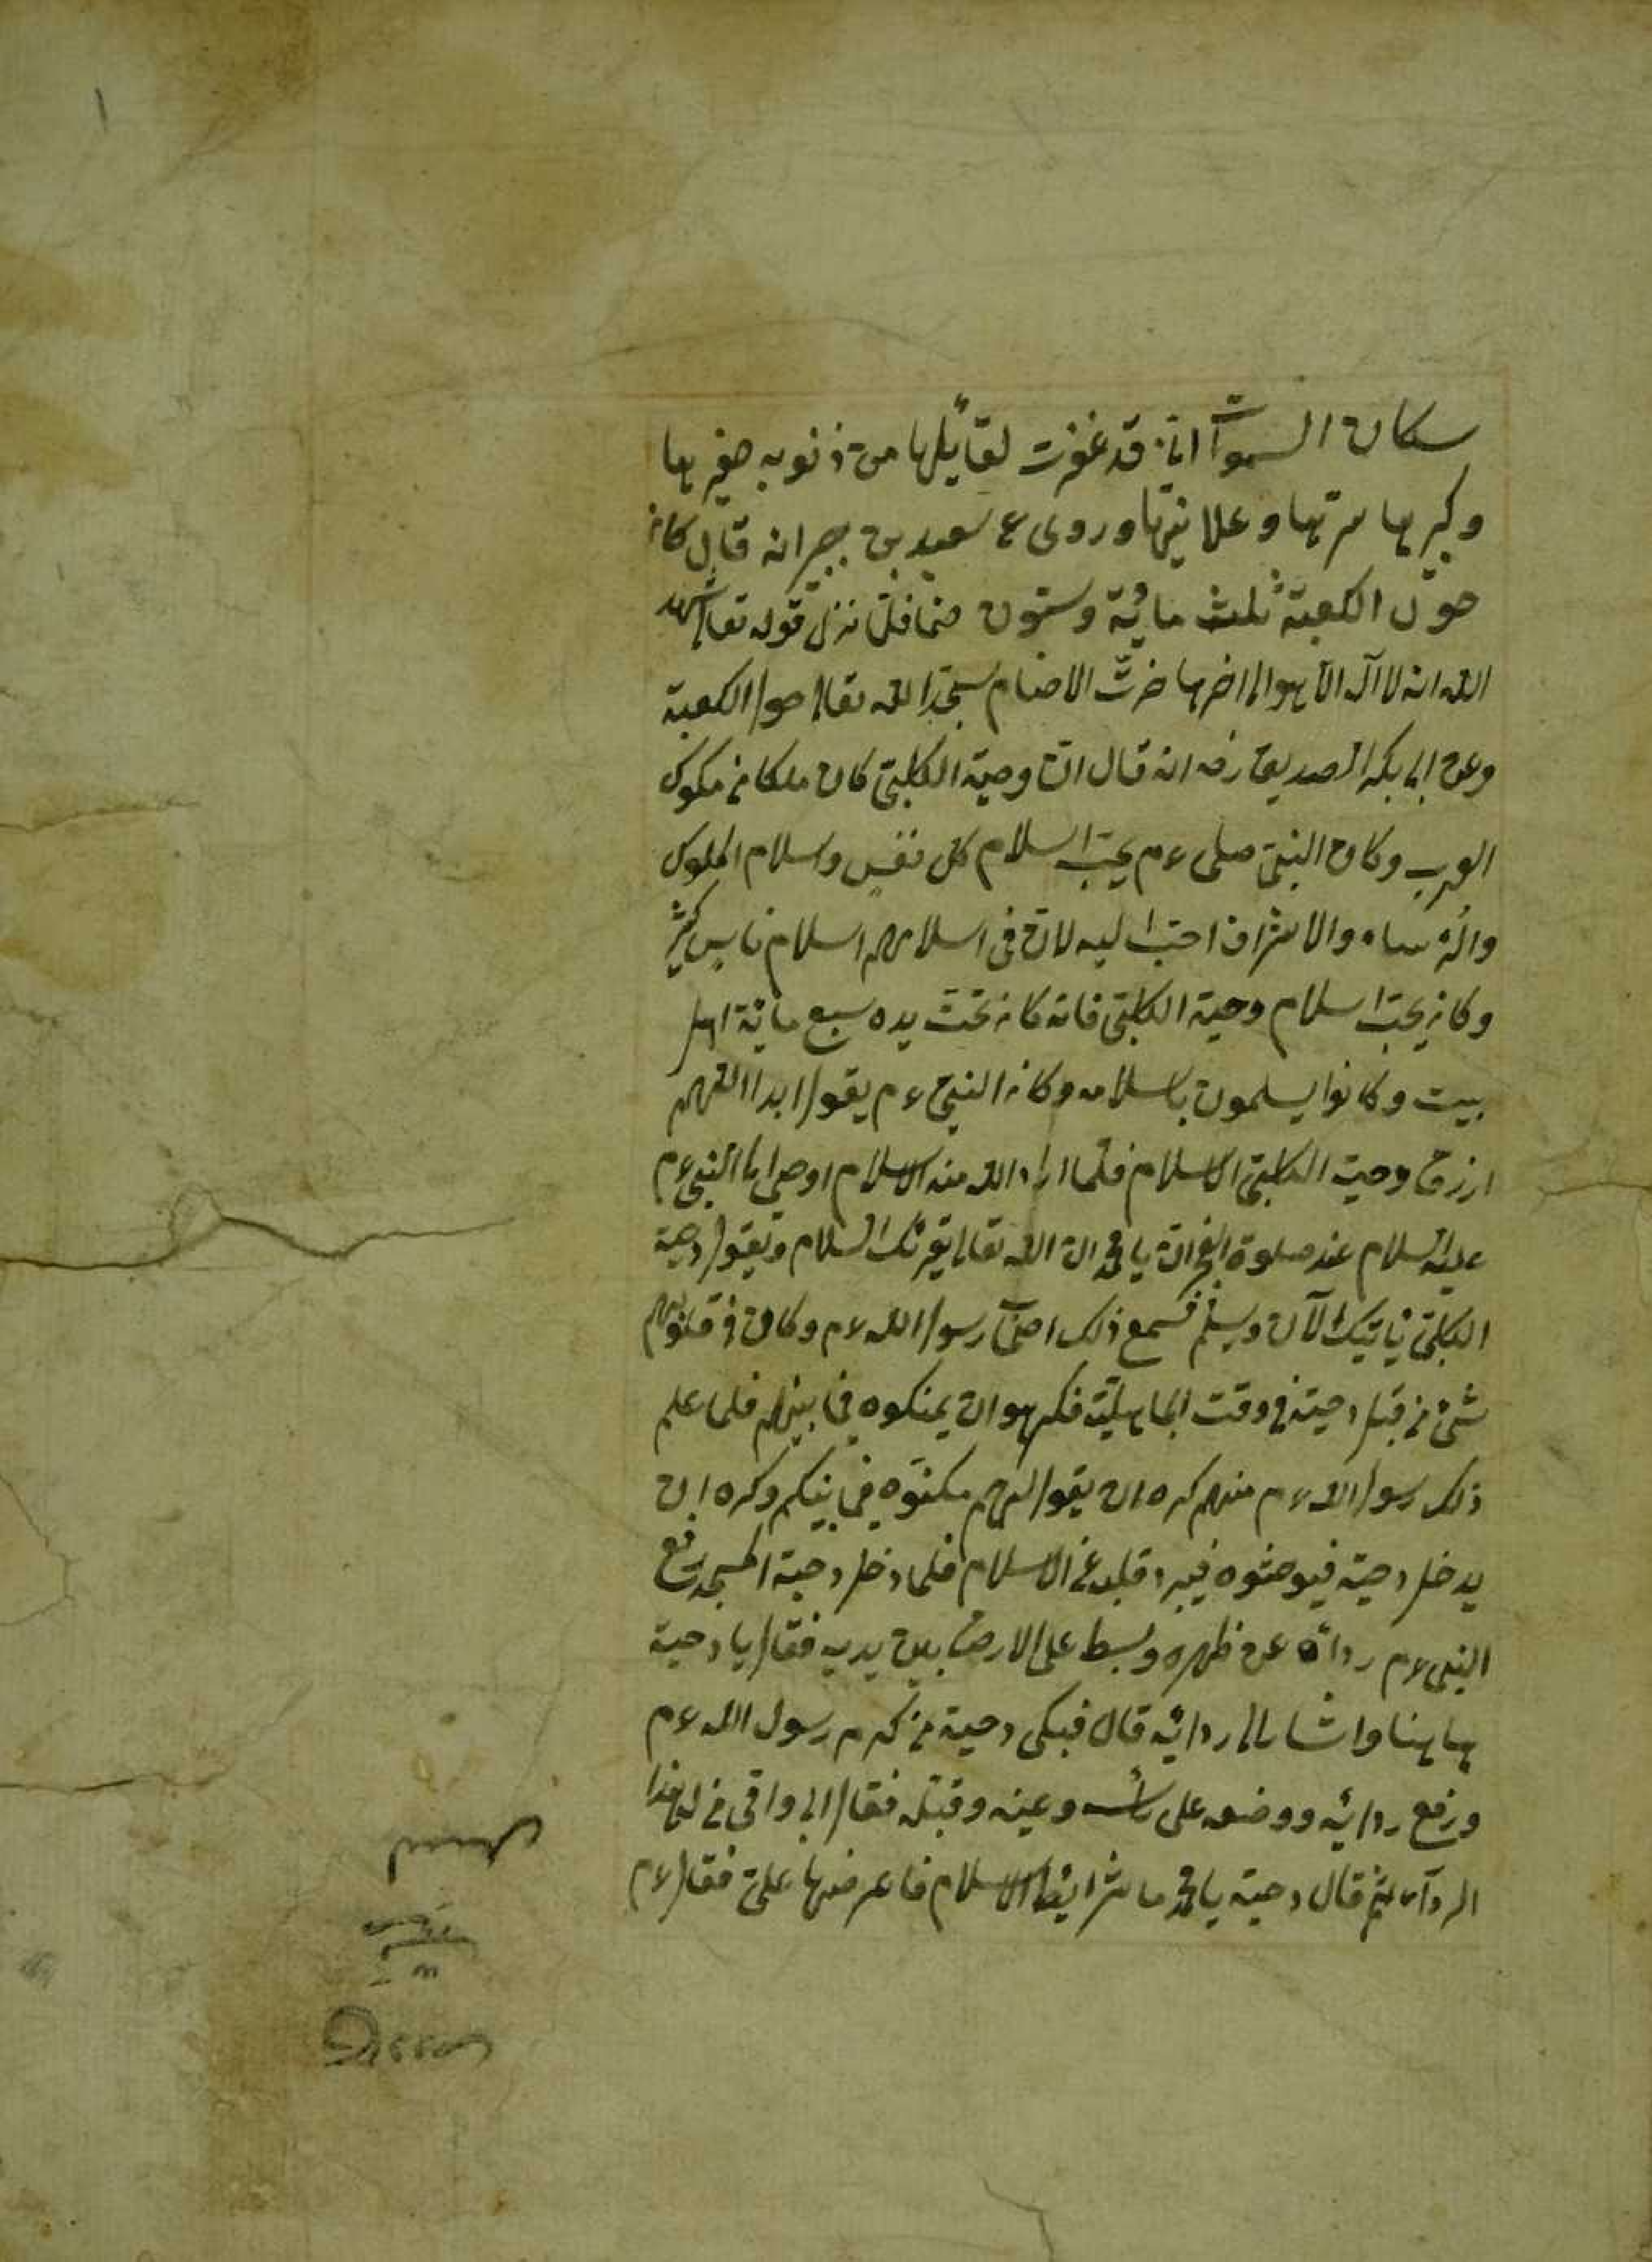 سكان السموآت انى قد غفرت لقائلها من ذنوبه صغيرها
وكبيرها سرتها وعلانيتها وروى ع سعيد بن جبير انه قال كان
حول الكعبة ثلث مائة وستون صنما فلما نزل قوله تعالى شهد
الله انه لا آله الا هو الى اخرها خرت الاصنام سجدا لله تعالى حول الكعبة
وعن ابى بكر الصديق رضه انه قال ان دحية الكلبى كان ملكا من ملوك
العرب وكان النبى صلى ءم يحب اسلام كل نفس واسلام الملوك
والرؤساء والاشراف احب اليه لان فى اسلامهم اسلام ناس كثير
وكان يحب اسلام دحية الكلبى فانه كان تحت يده سبع مائة اهل
بيت وكانوا يسلمون باسلامه وكان النبى ءم يقول ابدا اللهم
ارزق دحية الكلبى الاسلام فلما اراد الله منه الاسلام اوحى الى النبى ءم
عليه السلام عند صلوة الفجر ان يا محمد ان الله تعالى يقرئك السلام ويقول دحية
الكلبى ياتيك الآن ويسلم فسمع ذلك اصحاب رسول الله ءم وكان فى قلوبهم
شئ من قبل دحية فى وقت الجاهلية فكرهوا ان يمنكوه فيما بينهم فلما علم
ذلك رسول الله ءم منهم كره ان يقول لهم مكنوه فيما بينكم وكره ان
يدخل دحية فيوحشوه فيبرد قلبه عن الاسلام فلما دخل دحية المسجد رفع
النبى ءم ردائه عن ظهره وبسط على الارض بين يديه فقال يا دحية
هاهنا واشار الى ردائه قال فبكى دحية من كرم رسول الله ءم
ورفع ردائه ووضعه على رأسه وعينه وقبله فقال ابى واقى من له هذا
الردآء ثم قال دحية يا محمد ما شرائط الاسلام فاعرضها على فقال ءم